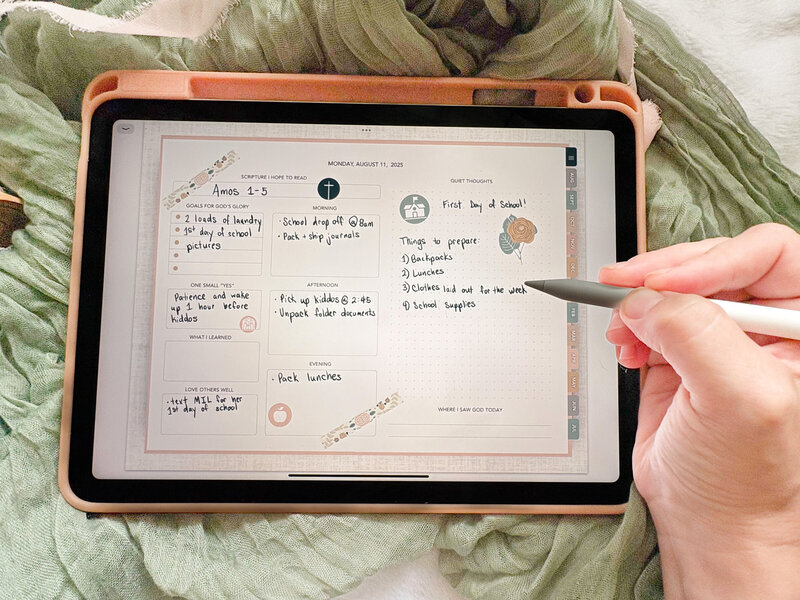 MONDAY, AUGUST 11, 2025
SCRIPTURE I HOPE TO READ
Amos 1-5
GOALS FOR GOD'S GLORY
2 loads of laundry
1st day of school
pictures
ONE SMALL "YES"
Patience and wake
up 1 hour before
kiddos
WHAT I LEARNED
LOVE OTHERS WELL
• text MIL for her
1st day of school
MORNING
• School drop off @ 8am
• Pack + ship journals
AFTERNOON
• Pick up kiddos @ 2:45
• Unpack folder documents
EVENING
• Pack lunches
QUIET THOUGHTS
First Day of School!
Things to prepare:
1) Backpacks
2) Lunches
3) Clothes laid out for the week
4) School Supplies
WHERE I SAW GOD TODAY
AUG
SEPT
OCT
NOV
DEC
FEB
MAR
MAY
JUN
JUL